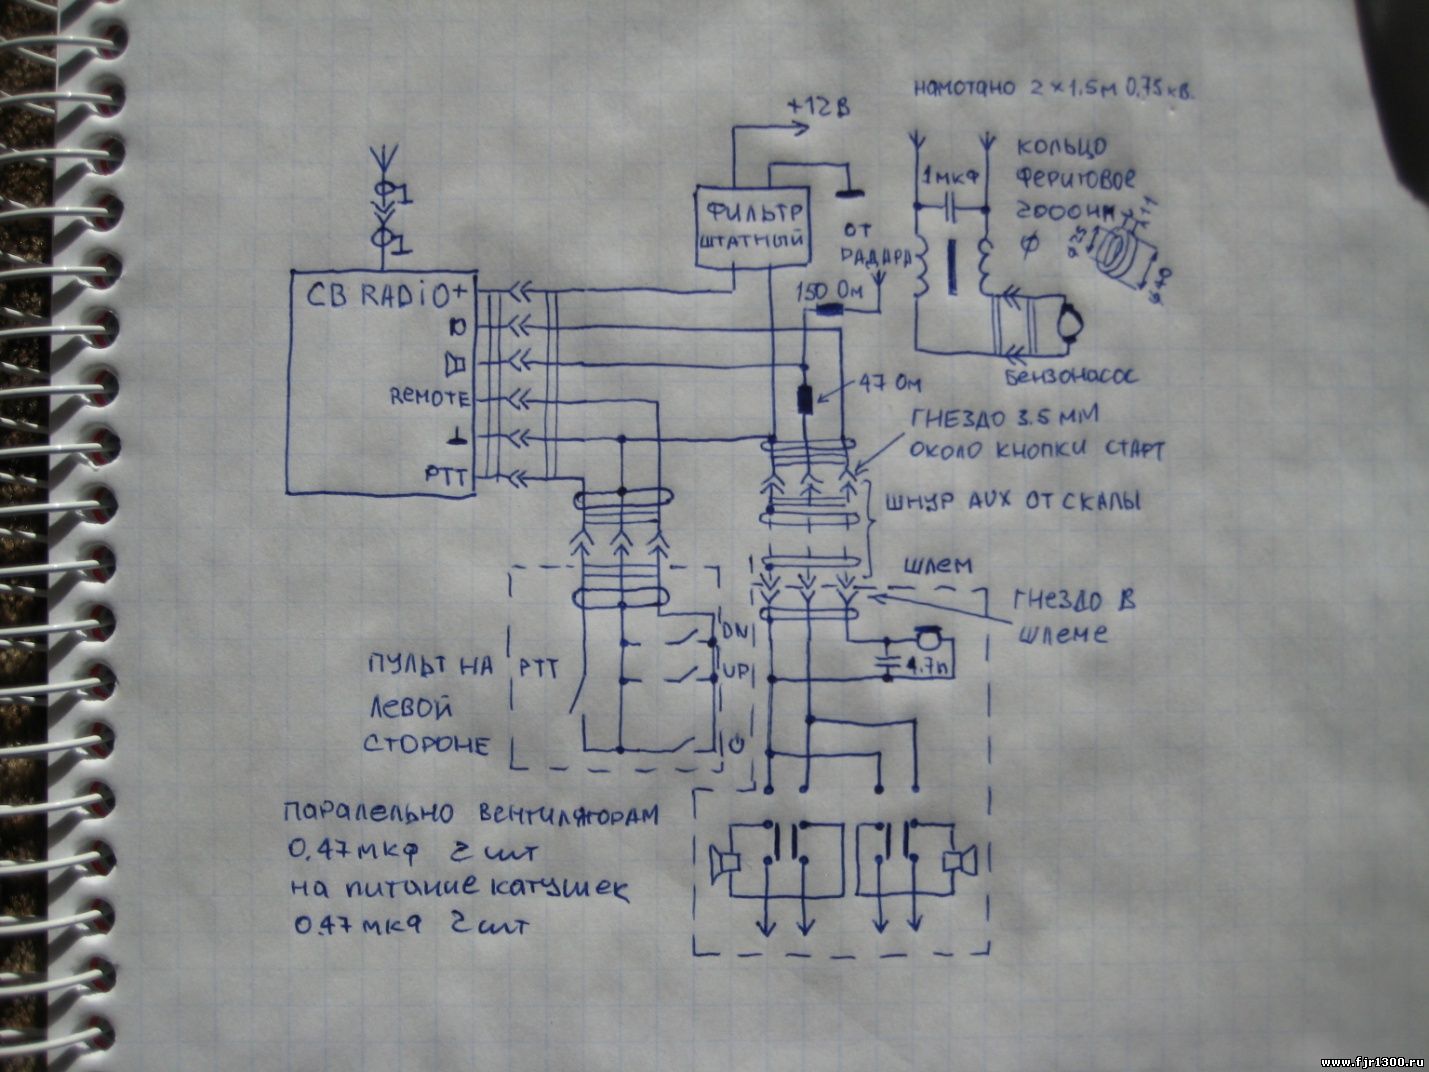 намотано 2 x 1,5м 0,75кв.
+12В
кольцо
феритовое
2000нм
1мкф
Ø
ø25
ø40
фильтр
штатный
от
радара
150 Ом
CB RADiO
+
Remote
PTT
47 Ом
бензонасос
гнездо 3.5 мм
около кнопки старт
шнур AUX от скалы
шлем
гнездо в
шлеме
4.7n
DN
UP
PTT
пульт на
левой
стороне
паралельно вентиляторам
0.47мкф 2шт
на питание катушек
0.47мкф 2шт
www.fjr1300.ru